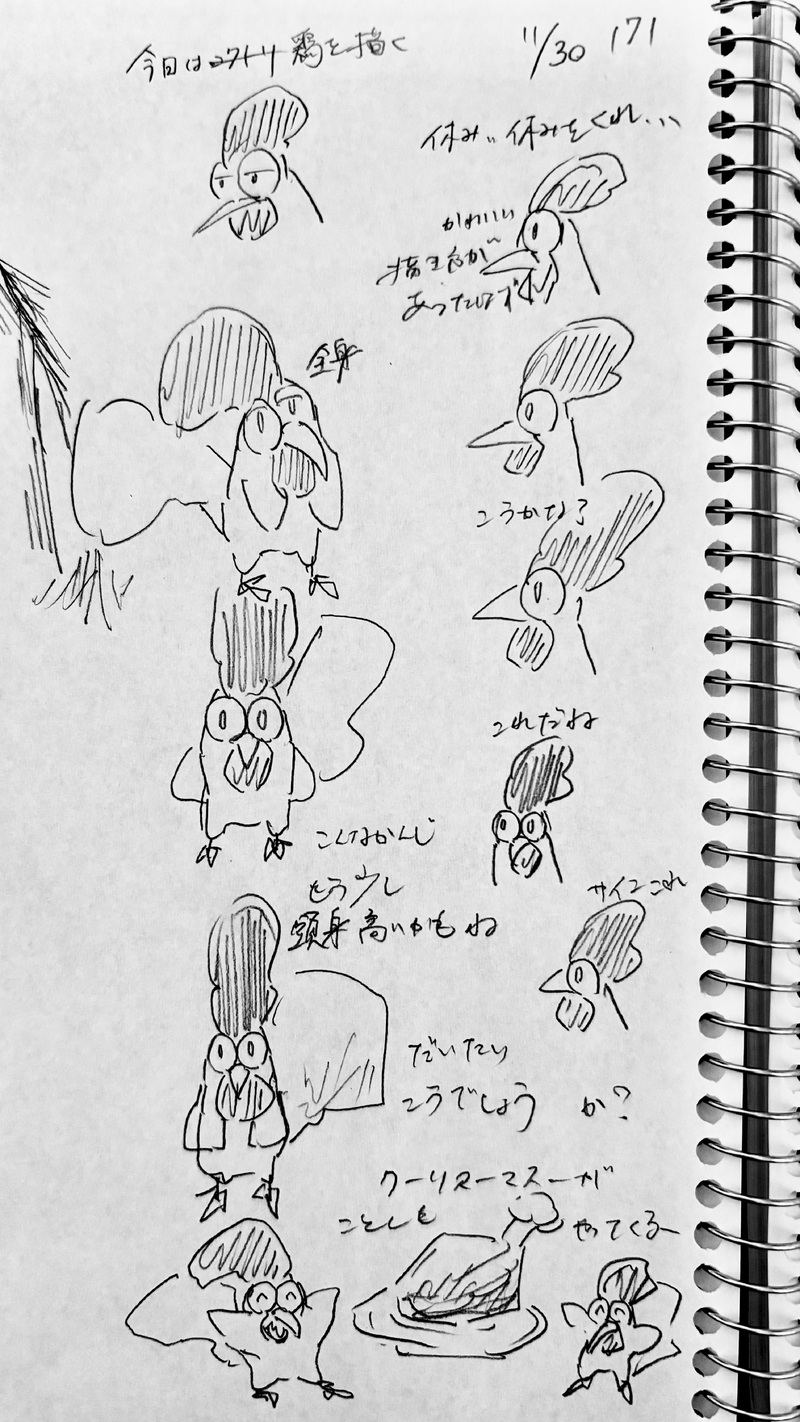 今日はニワトリ鶏を描く
11/30 171
休み、休みをくれ…
かわいい
描き方が
あったはず
全身
こうかな?
これだね
こんなかんじ
もう少し
頭身高いかもね
サインこれ
だいたい
こうでしょうか?
クーリスーマスーが
ことしも
やってくるー